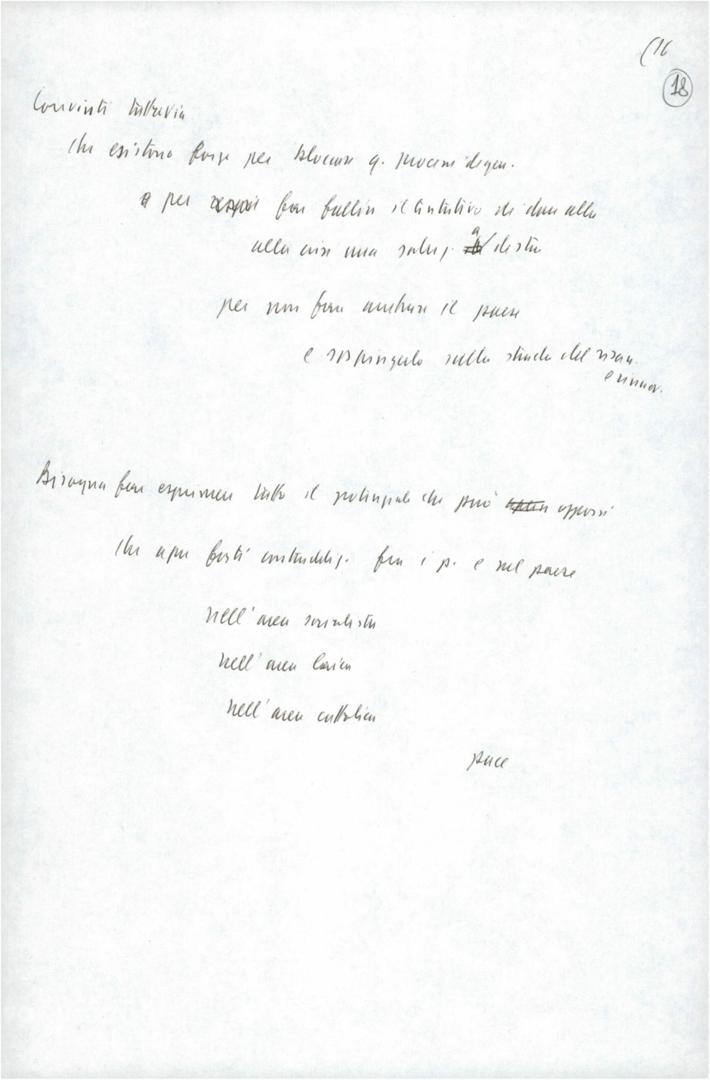 (16
18
Convinti tuttavia
che esistono forze per bloccare q. processi degen.
e per far fallire il tentativo di dare alla
alla crisi una soluz. a destra
per non fare arretrare il paese
e sospingerlo sulla strada del risan.
e rinnov.
Bisogna fare esprimere tutto il potenziale che può opporsi
che apre forti contraddiz. fra i p. e nel paese
nell'area socialista
nell'area laica
nell'area cattolica
pace